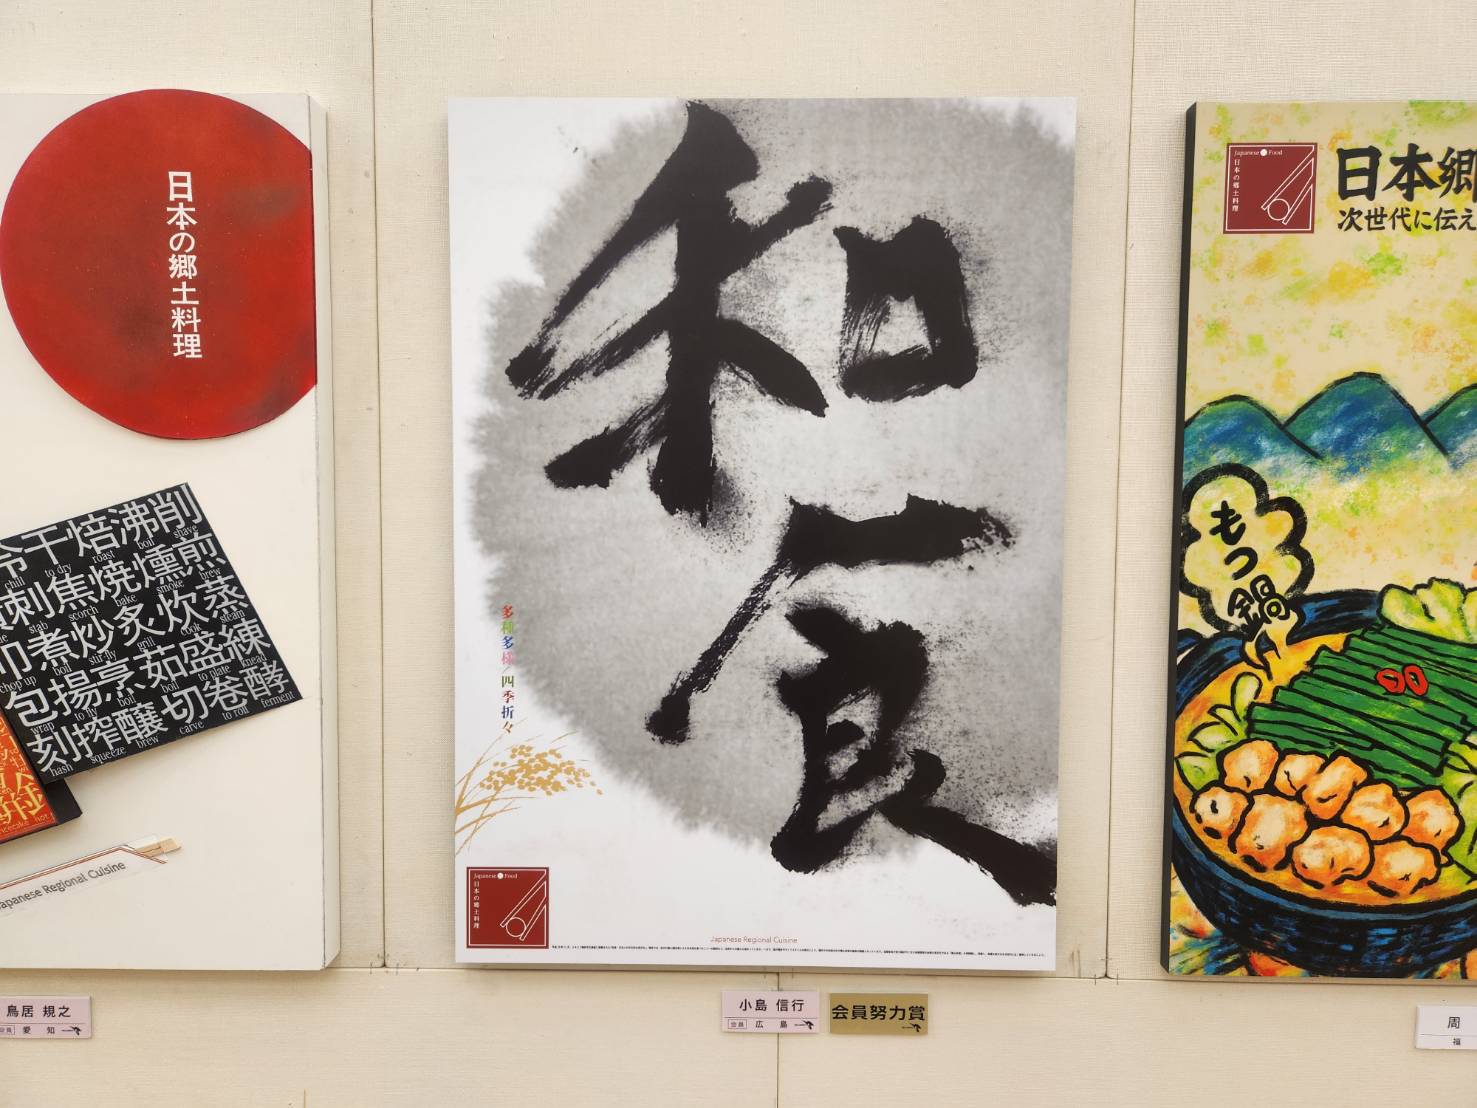 日本の郷土料理
冷干焙沸削
chill to dry roast boil shave
刺焦焼燻煎
stab scorch bake smoke brew
煮炒炙炊蒸
chop up boil stir-fly grill cook steam
包揚烹茹盛練
wrap to fly boil boil to plate knead
刻搾醸切巻酵
hash squeeze brew carve to roll ferment
Japanese Regional Cuisine
鳥居 規之
会員 愛知
和食
多種多様/四季折々
Japanese Food
日本の郷土料理
Japanese Regional Cuisine
小島 信行
会員 広島
会員努力賞
Japanese Food
日本の郷土料理
日本郷
次世代に伝え
もつ鍋
周
福